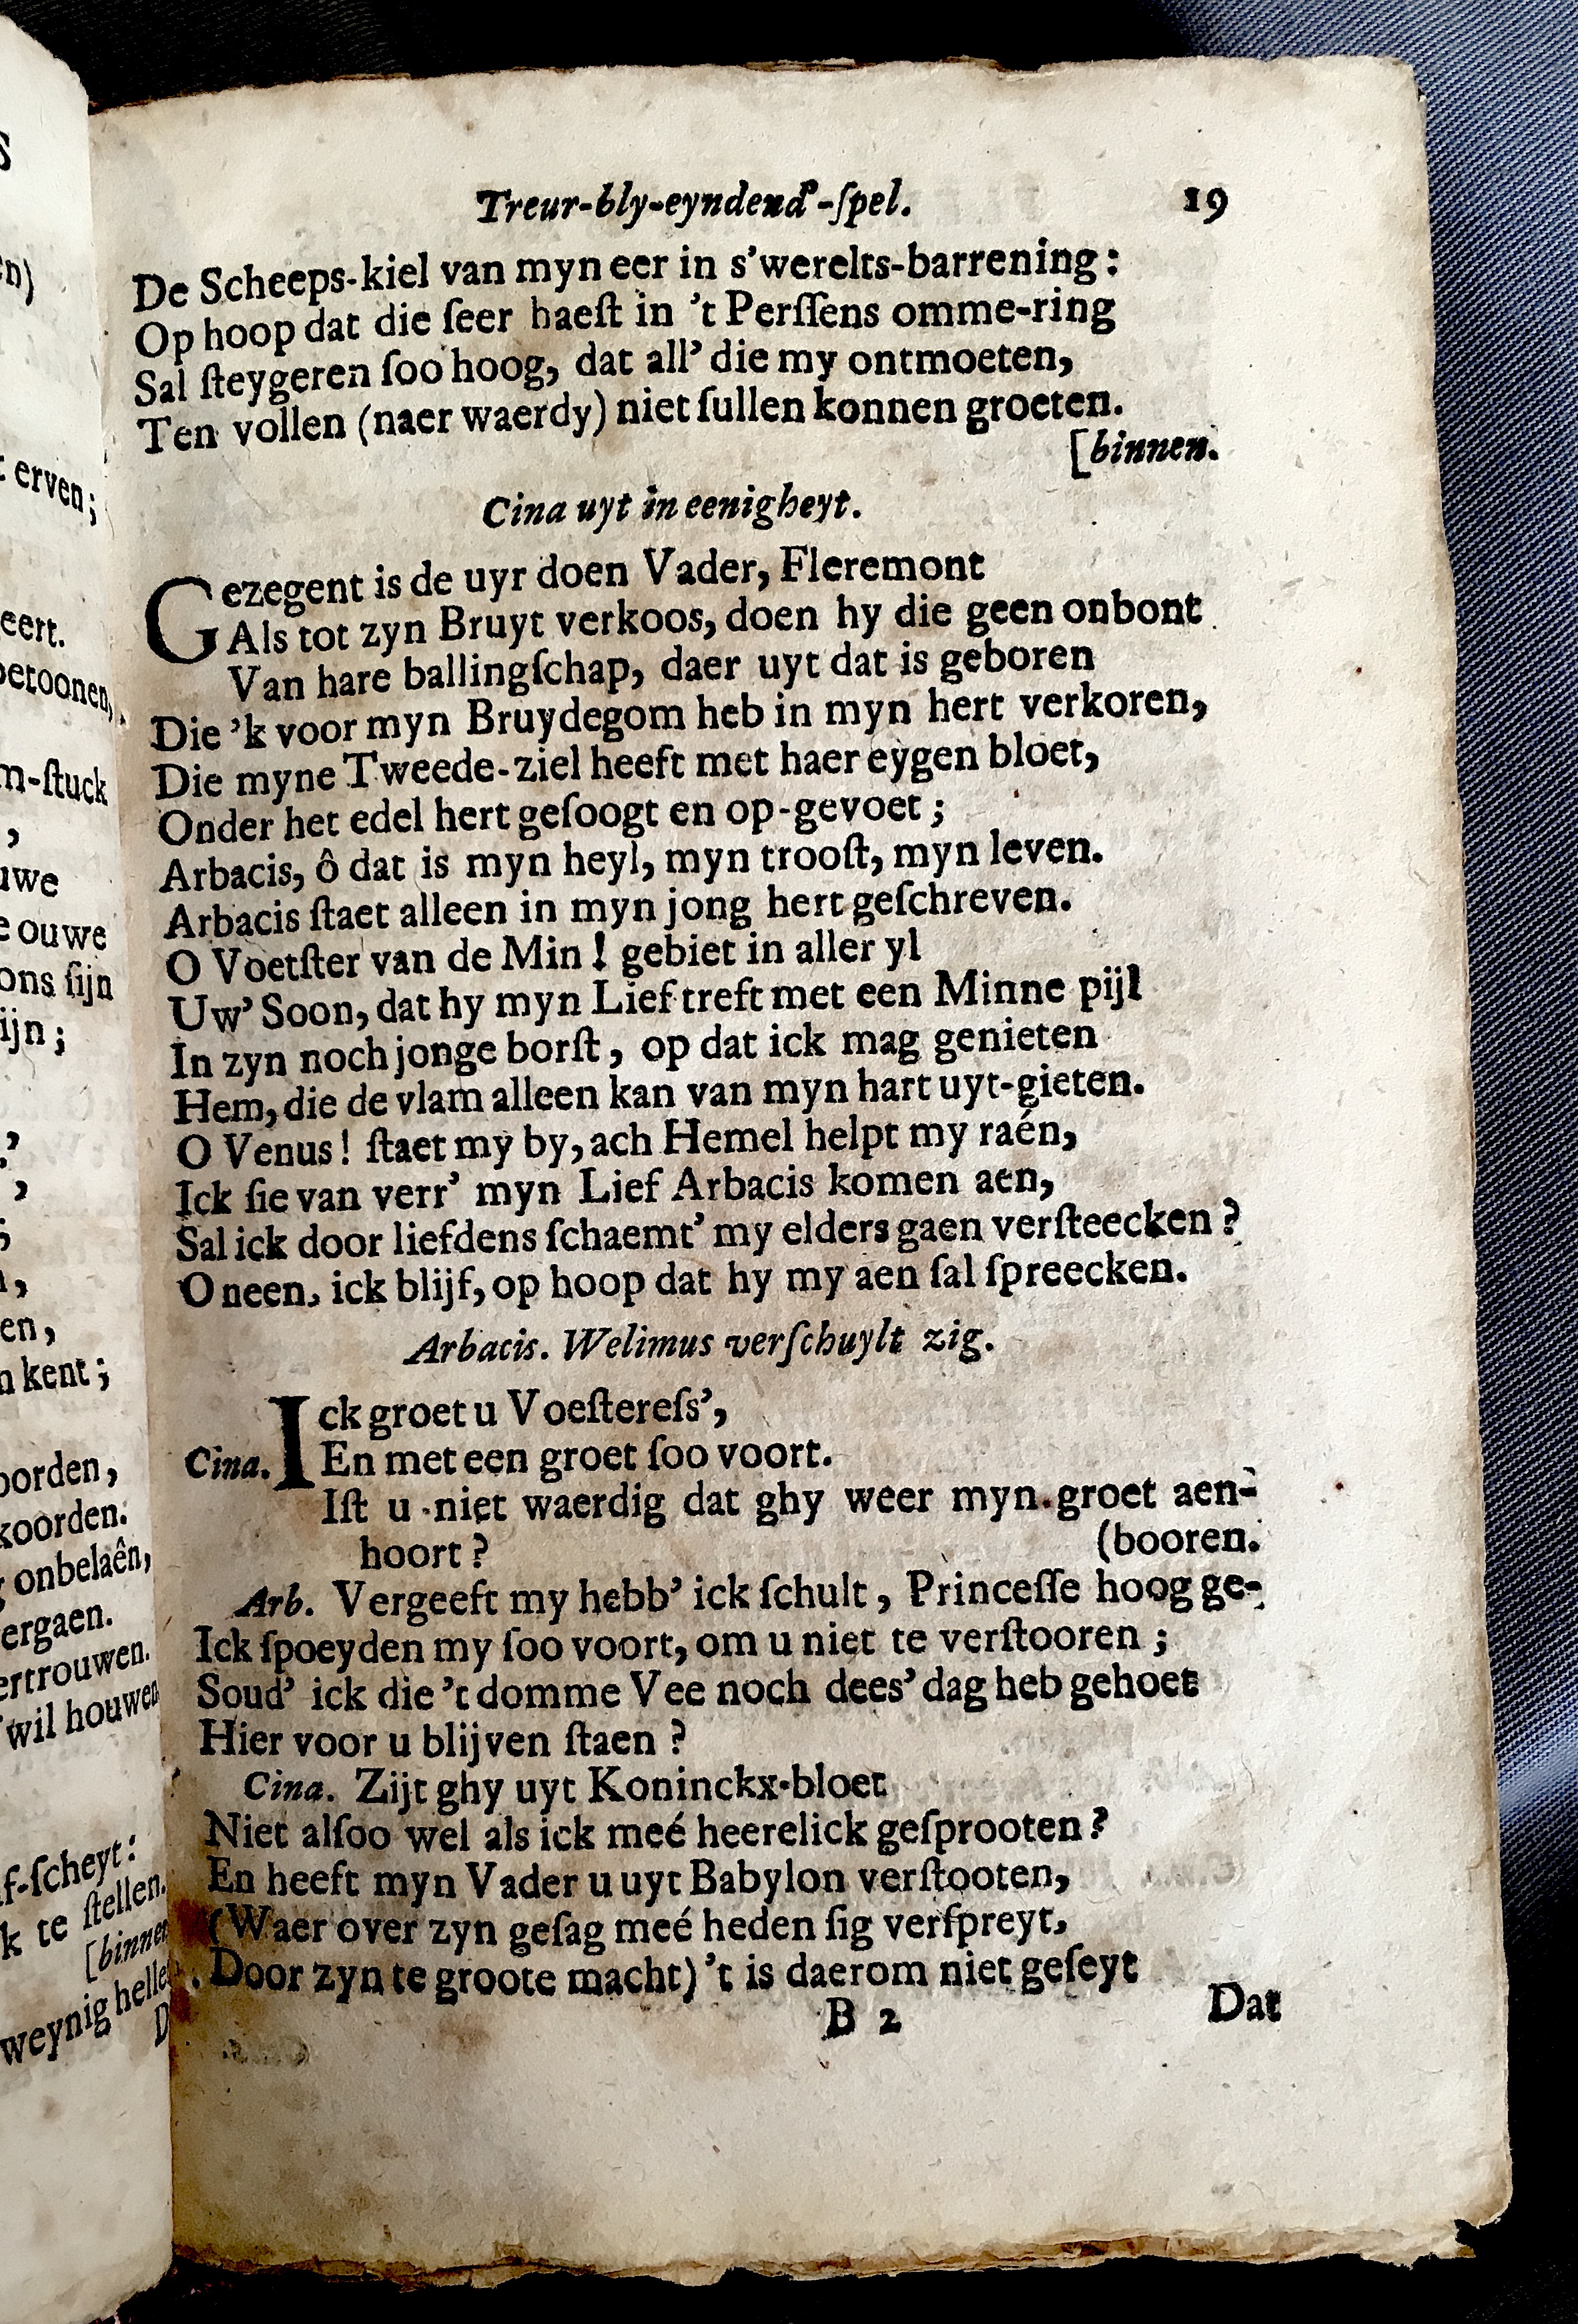 Treur-bly-eyndend'-ſpel. 19
De Scheeps-kiel van myn eer in s'werelts-barrening:
Op hoop dat die ſeer haeſt in 't Perſſens omme-ring
Sal ſteygeren ſoo hoog, dat all' die my ontmoeten,
Ten vollen (naer waerdy) niet ſullen konnen groeten.
[binnen.
Cina uyt in eenigheyt.
Gezegent is de uyr doen Vader, Fleremont
Als tot zyn Bruyt verkoos, doen hy die geen onbont
Van hare ballingſchap, daer uyt dat is geboren
Die 'k voor myn Bruydegom heb in myn hert verkoren,
Die myne Tweede-ziel heeft met haer eygen bloet,
Onder het edel hert geſoogt en op-gevoet;
Arbacis, ô dat is myn heyl, myn trooſt, myn leven.
Arbacis ſtaet alleen in myn jong hert geſchreven.
O Voetſter van de Min! gebiet in aller yl
Uw' Soon, dat hy myn Lief treft met een Minne pijl
In zyn noch jonge borſt, op dat ick mag genieten
Hem, die de vlam alleen kan van myn hart uyt-gieten.
O Venus! ſtaet my by, ach Hemel helpt my raén,
Ick ſie van verr' myn Lief Arbacis komen aen,
Sal ick door liefdens ſchaemt' my elders gaen verſteecken?
O neen, ick blijf, op hoop dat hy my aen ſal ſpreecken.
Arbacis. Welimus verſchuylt zig.
Ick groet u Voeſtereſs',
Cina. En met een groet ſoo voort.
Iſt u niet waerdig dat ghy weer myn groet aen-
hoort? (booren.
Arb. Vergeeft my hebb' ick ſchult, Princeſſe hoog ge-
Ick ſpoeyden my ſoo voort, om u niet te verſtooren;
Soud' ick die 't domme Vee noch dees' dag heb gehoet
Hier voor u blijven ſtaen?
Cina. Zijt ghy uyt Koninckx-bloet
Niet alſoo wel als ick meé heerelick geſprooten?
En heeft myn Vader u uyt Babylon verſtooten,
(Waer over zyn geſag meé heden ſig verſpreyt,
Door zyn te groote macht) 't is daerom niet geſeyt
B 2 Dat